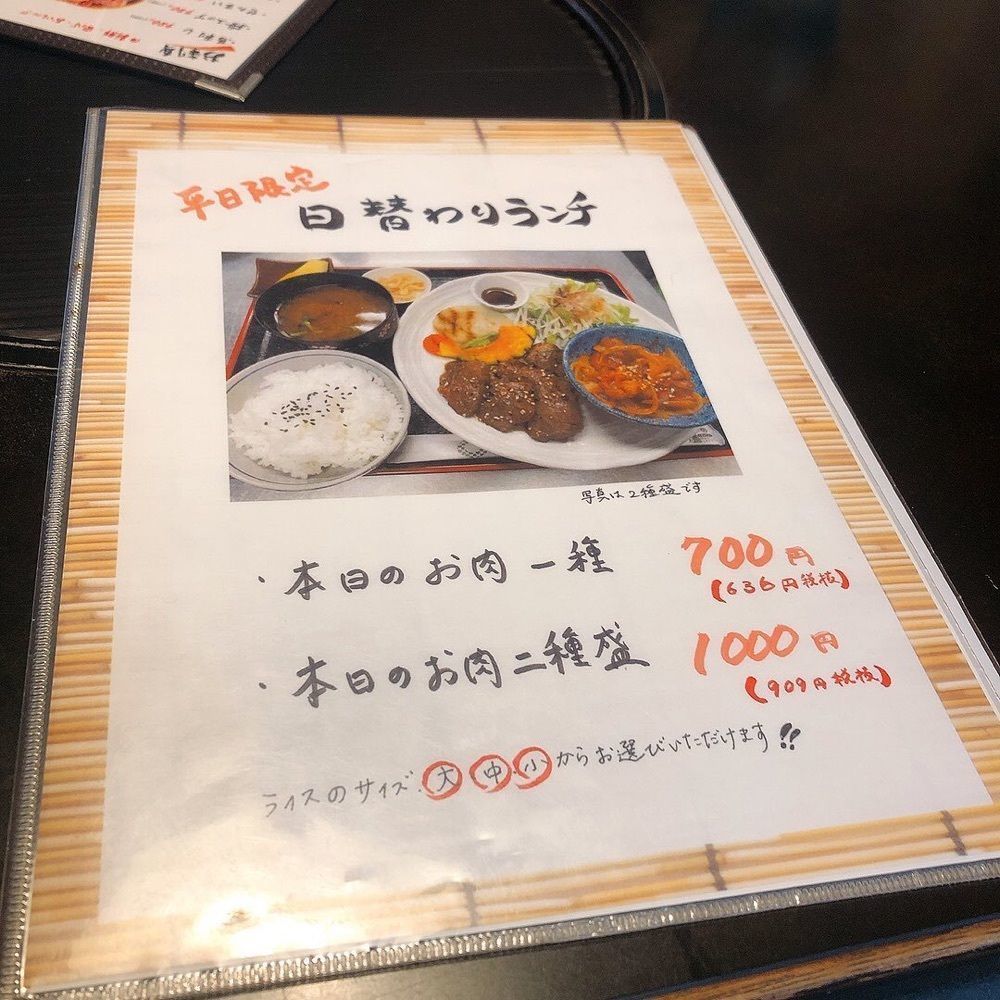 平日限定
日替わりランチ
写真は2種盛です
・本日のお肉一種 700円
(636円税抜)
・本日のお肉二種盛 1000円
(909円税抜)
ライスのサイズ、大 中 小からお選びいただけます!!